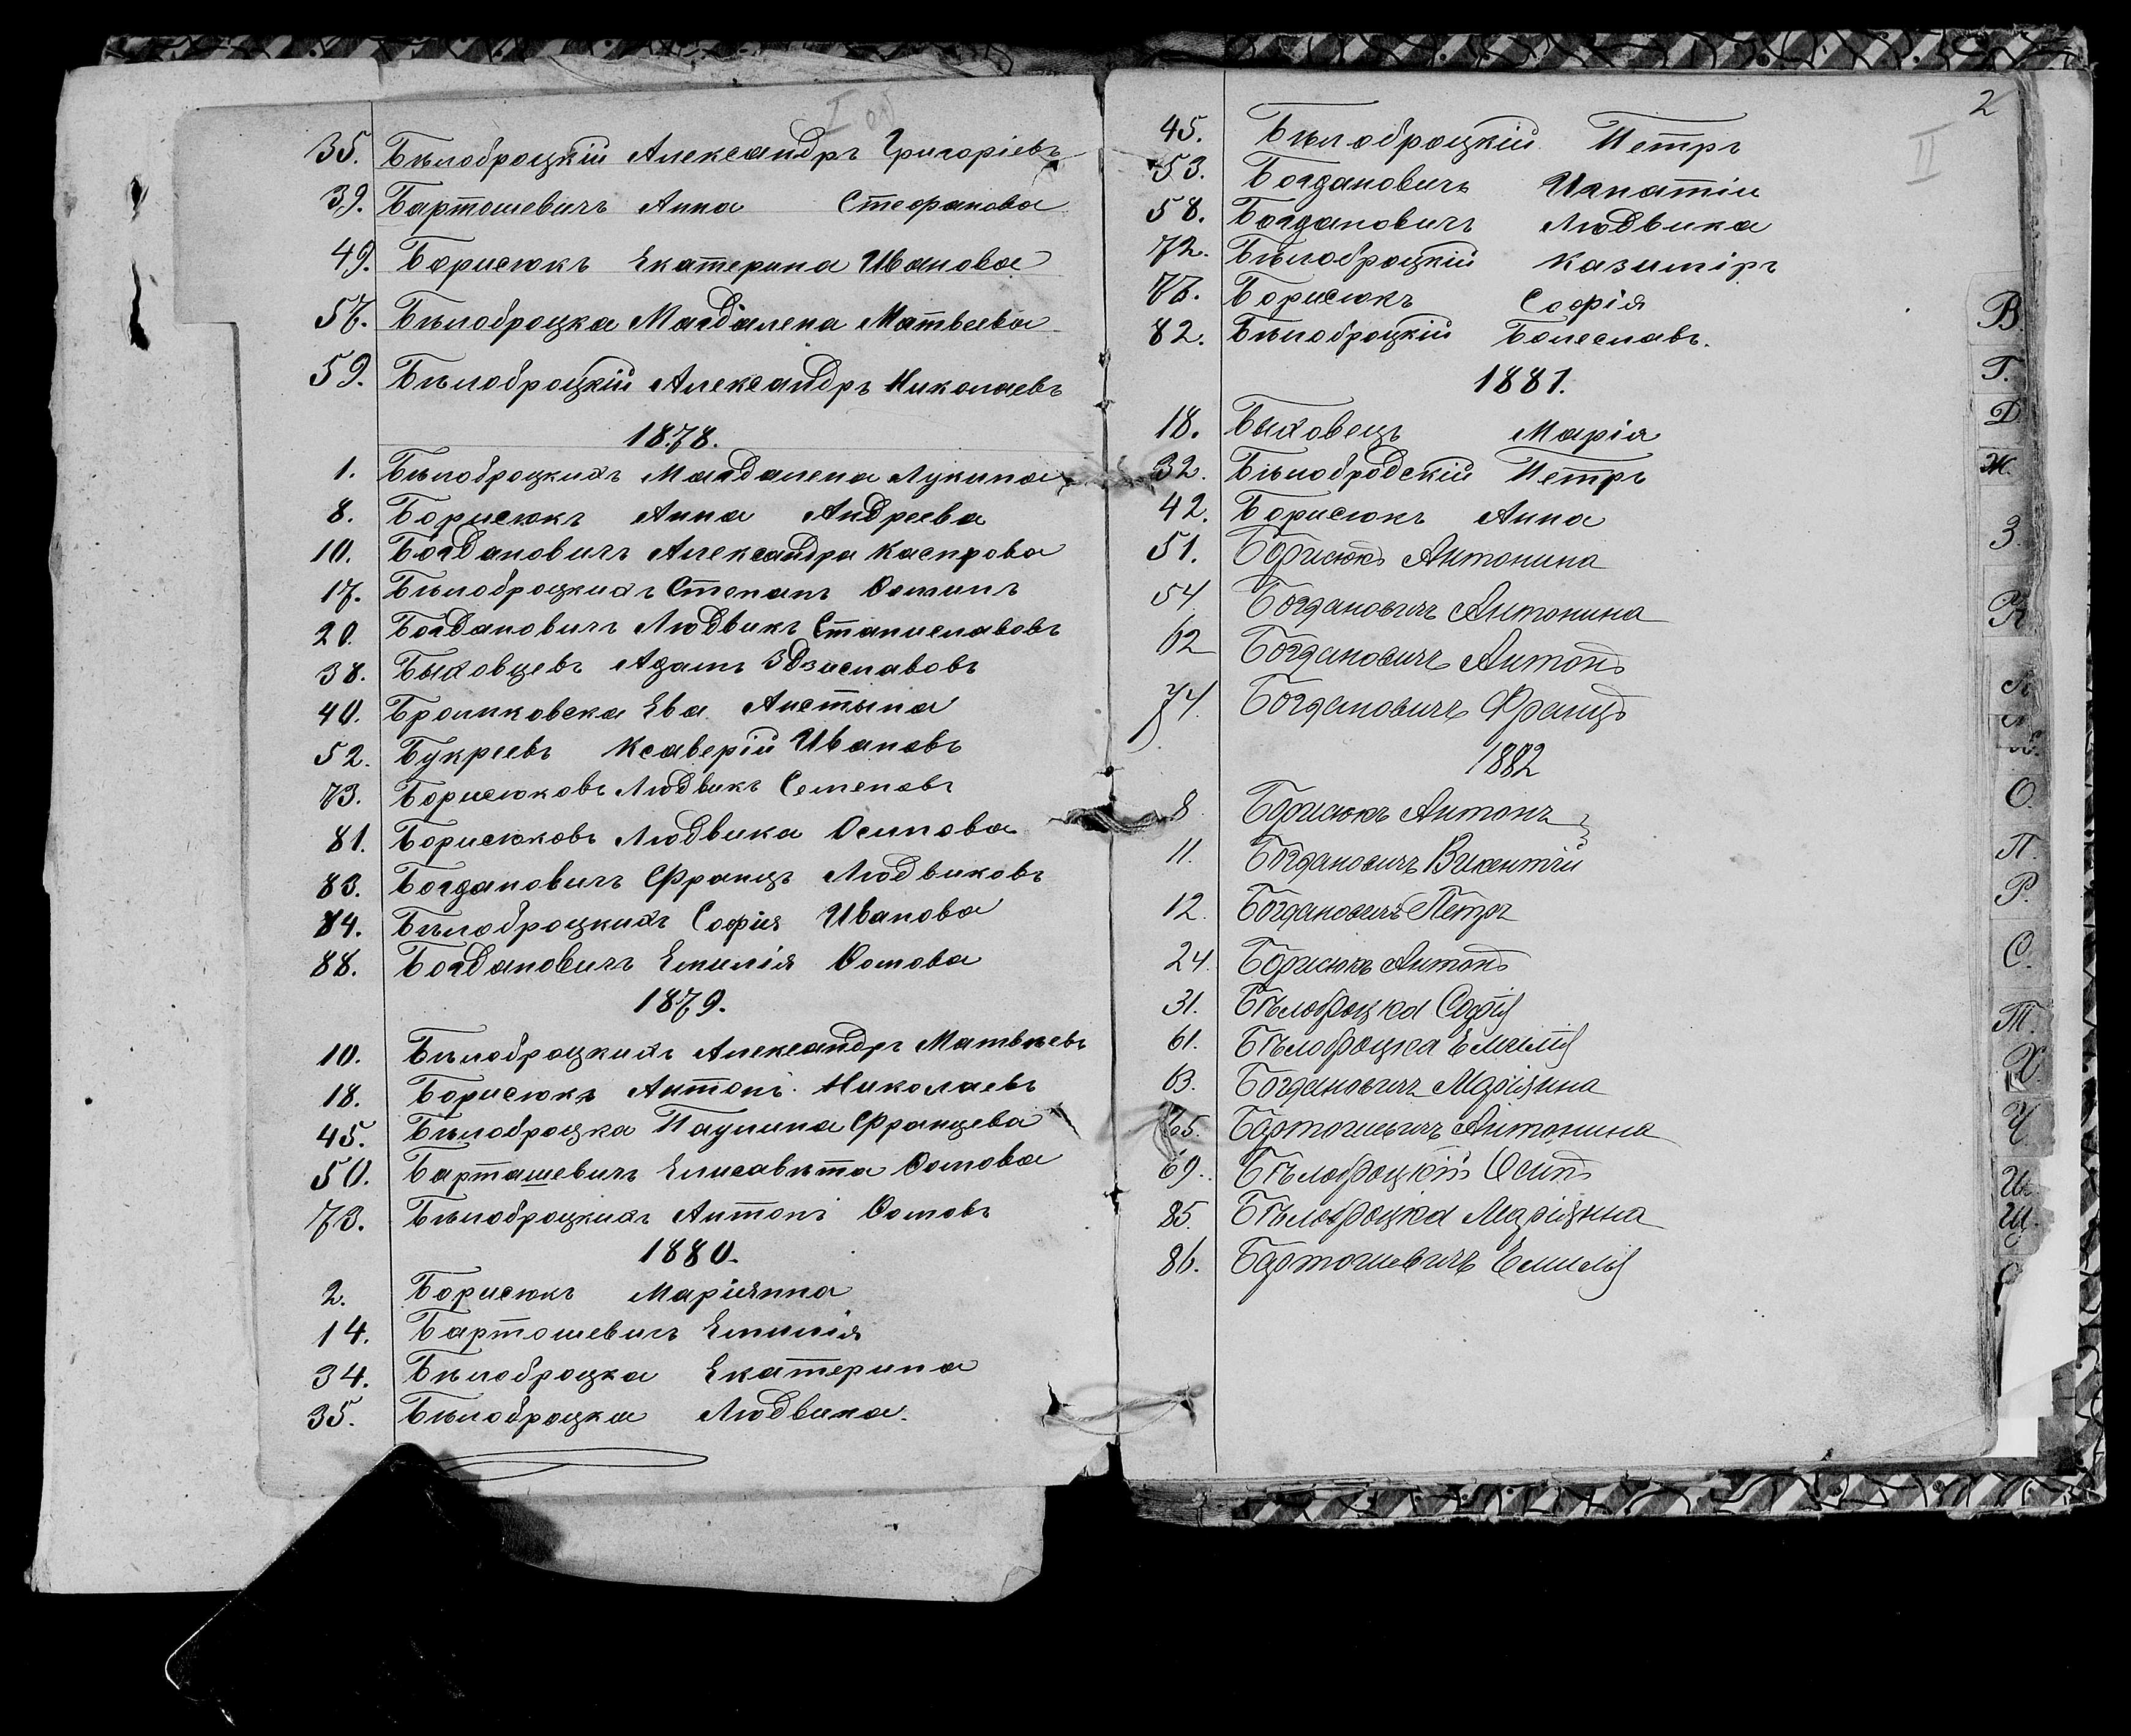 I об
35. Бѣлоброцкій Александръ Григоріевъ
39. Бартошевичъ Анна Стефанова
49. Борисюкъ Екатерина Иванова
57. Бѣлоброцка Магдалена Матвеева
59. Бѣлоброцкій Александръ Николаевъ
1878.
1. Бѣлоброцкихъ Магдалена Лукина
8. Борисюкъ Анна Андреева
10. Богдановичъ Александра Каспрова
17. Бѣлоброцкихъ Степанъ Ѳоминъ
20. Богдановичъ Людвикъ Станиславовъ
38. Быховцевъ Адамъ Здзиславовъ
40. Бромиковска Ева Аистына
52. Букреевъ Ксаверій Ивановъ
73. Борисюковъ Людвикъ Семеновъ
81. Борисюковъ Людвика Осипова
83. Богдановичъ Францъ Людвиковъ
84. Бѣлоброцкихъ Софія Иванова
88. Богдановичъ Емилія Ѳомова
1879.
10. Бѣлоброцкихъ Александръ Матвѣевъ
18. Борисюкъ Антонъ Николаевъ
45. Бѣлоброцка Паулина Францева
50. Барташевичъ Елисавѣта Ѳомова
73. Бѣлоброцкихъ Антонъ Ѳомовъ
1880.
2. Борисюкъ Маріянна
14. Бартошевичъ Емилія
34. Бѣлоброцка Екатерина
35. Бѣлоброцка Людвика.
2
II
45. Бѣлоброцкій Петръ
53. Богдановичъ Игнатіи
58. Богдановичъ Людвика
72. Бѣлоброцкій Казиміръ
77. Борисюкъ Софія
82. Бѣлоброцкій Болеславъ.
1881.
18. Быховецъ Марія
32. Бѣлобродскій Петръ
42. Борисюкъ Анна
51. Борисюкъ Антонина
54 Богдановичъ Антонина
62 Богдановичъ Антонъ
74. Богдановичъ Францъ
1882
8 Борисюкъ Антонъ
11. Богдановичъ Викентій
12. Богдановичъ Петръ
24. Борисюкъ Антонъ
31. Бѣлоброцка Софія
61. Бѣлоброцка Емилія
63. Богдановичъ Маріянна
65. Бартошевичъ Антонина
69. Бѣлоброцкій Осипъ
85. Бѣлоброцка Маріянна
86. Бартошевичъ Емилія
В.
Г.
Д.
Ж.
З.
О.
П.
Р.
С.
Т.
Х.
Ч.
Ш.
Щ.